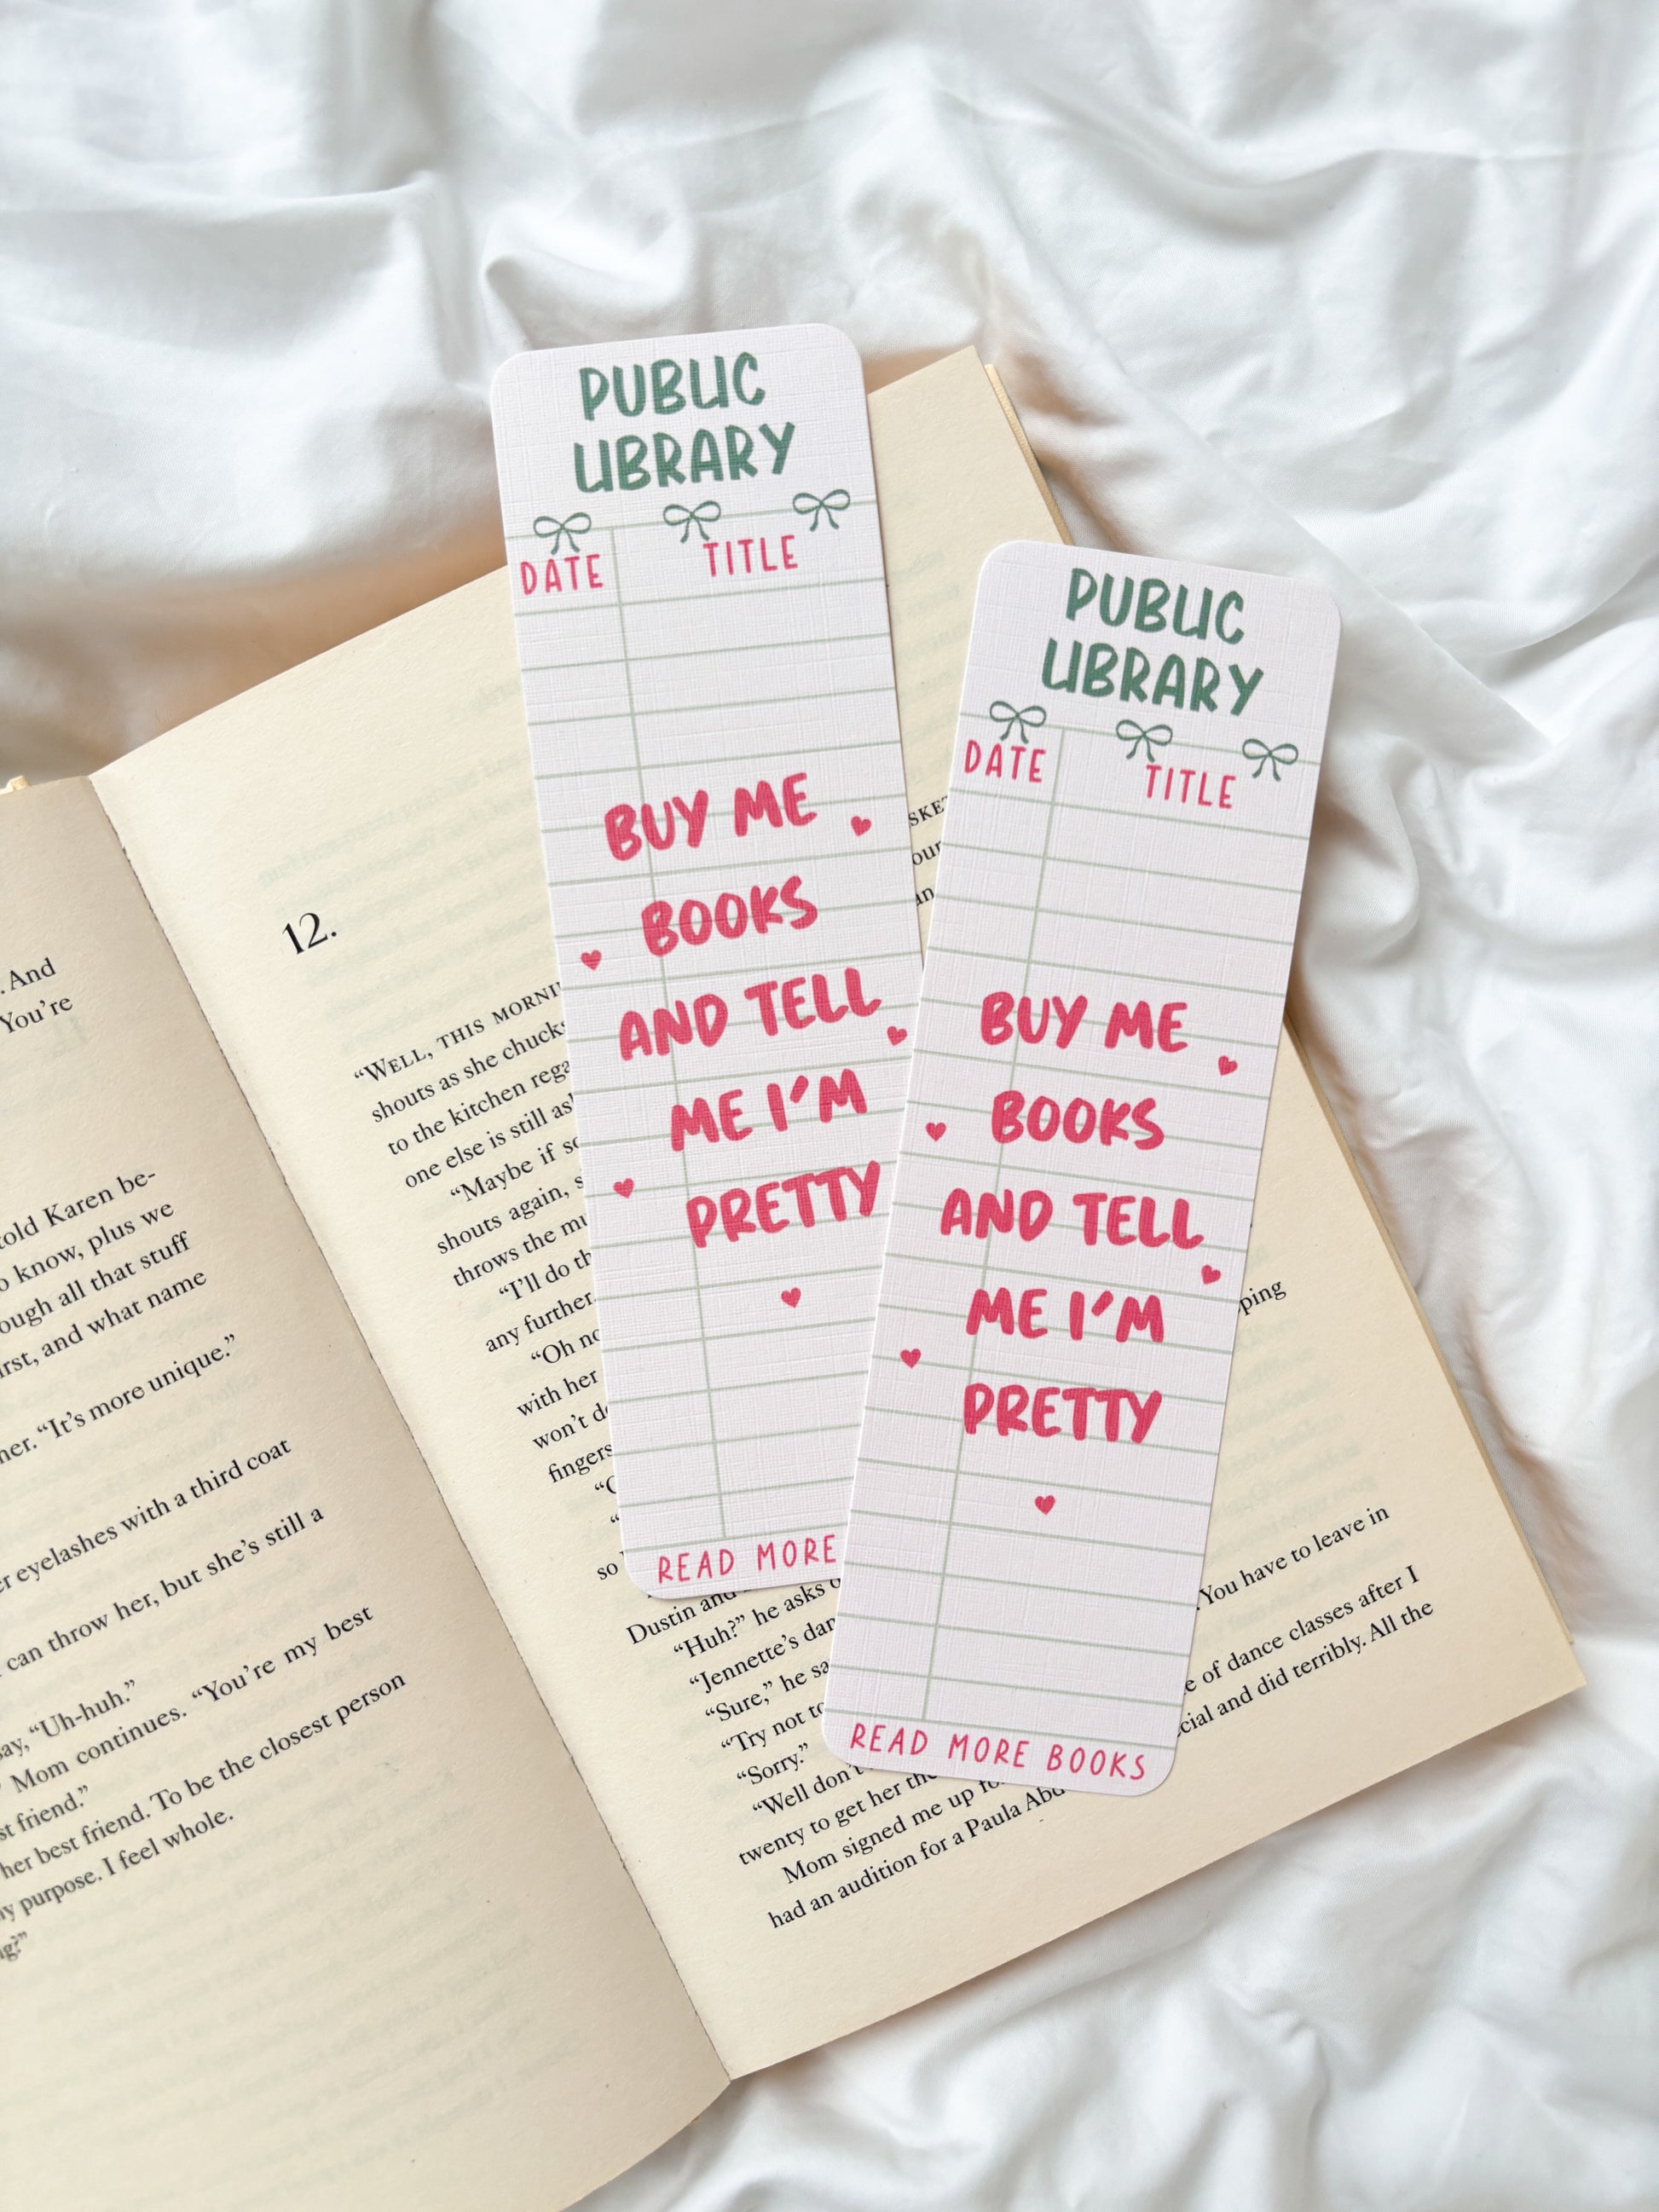 PUBLIC
LIBRARY
DATE TITLE
BUY ME
BOOKS
AND TELL
ME I'M
PRETTY
READ MORE
PUBLIC
LIBRARY
DATE TITLE
BUY ME
BOOKS
AND TELL
ME I'M
PRETTY
READ MORE BOOKS
. And
You're
told Karen be-
know, plus we
all that stuff
and what name
"It's more unique."
eyelashes with a third coat
can throw her, but she's still a
"Uh-huh."
Mom continues. "You're my best
friend."
her best friend. To be the closest person
purpose. I feel whole.
12.
"WELL, THIS
shouts as she
to the kitchen
one else is still
"Maybe if
shouts again,
throws the
"I'll do
any further.
"Oh
with her
won't
so
Dustin and
"Huh?" he asks
"Jennette's
"Sure," he
"Try not
"Sorry."
"Well
twenty to get her
Mom signed me up
had an audition for a Paula
You have to leave in
of dance classes after I
and did terribly. All the